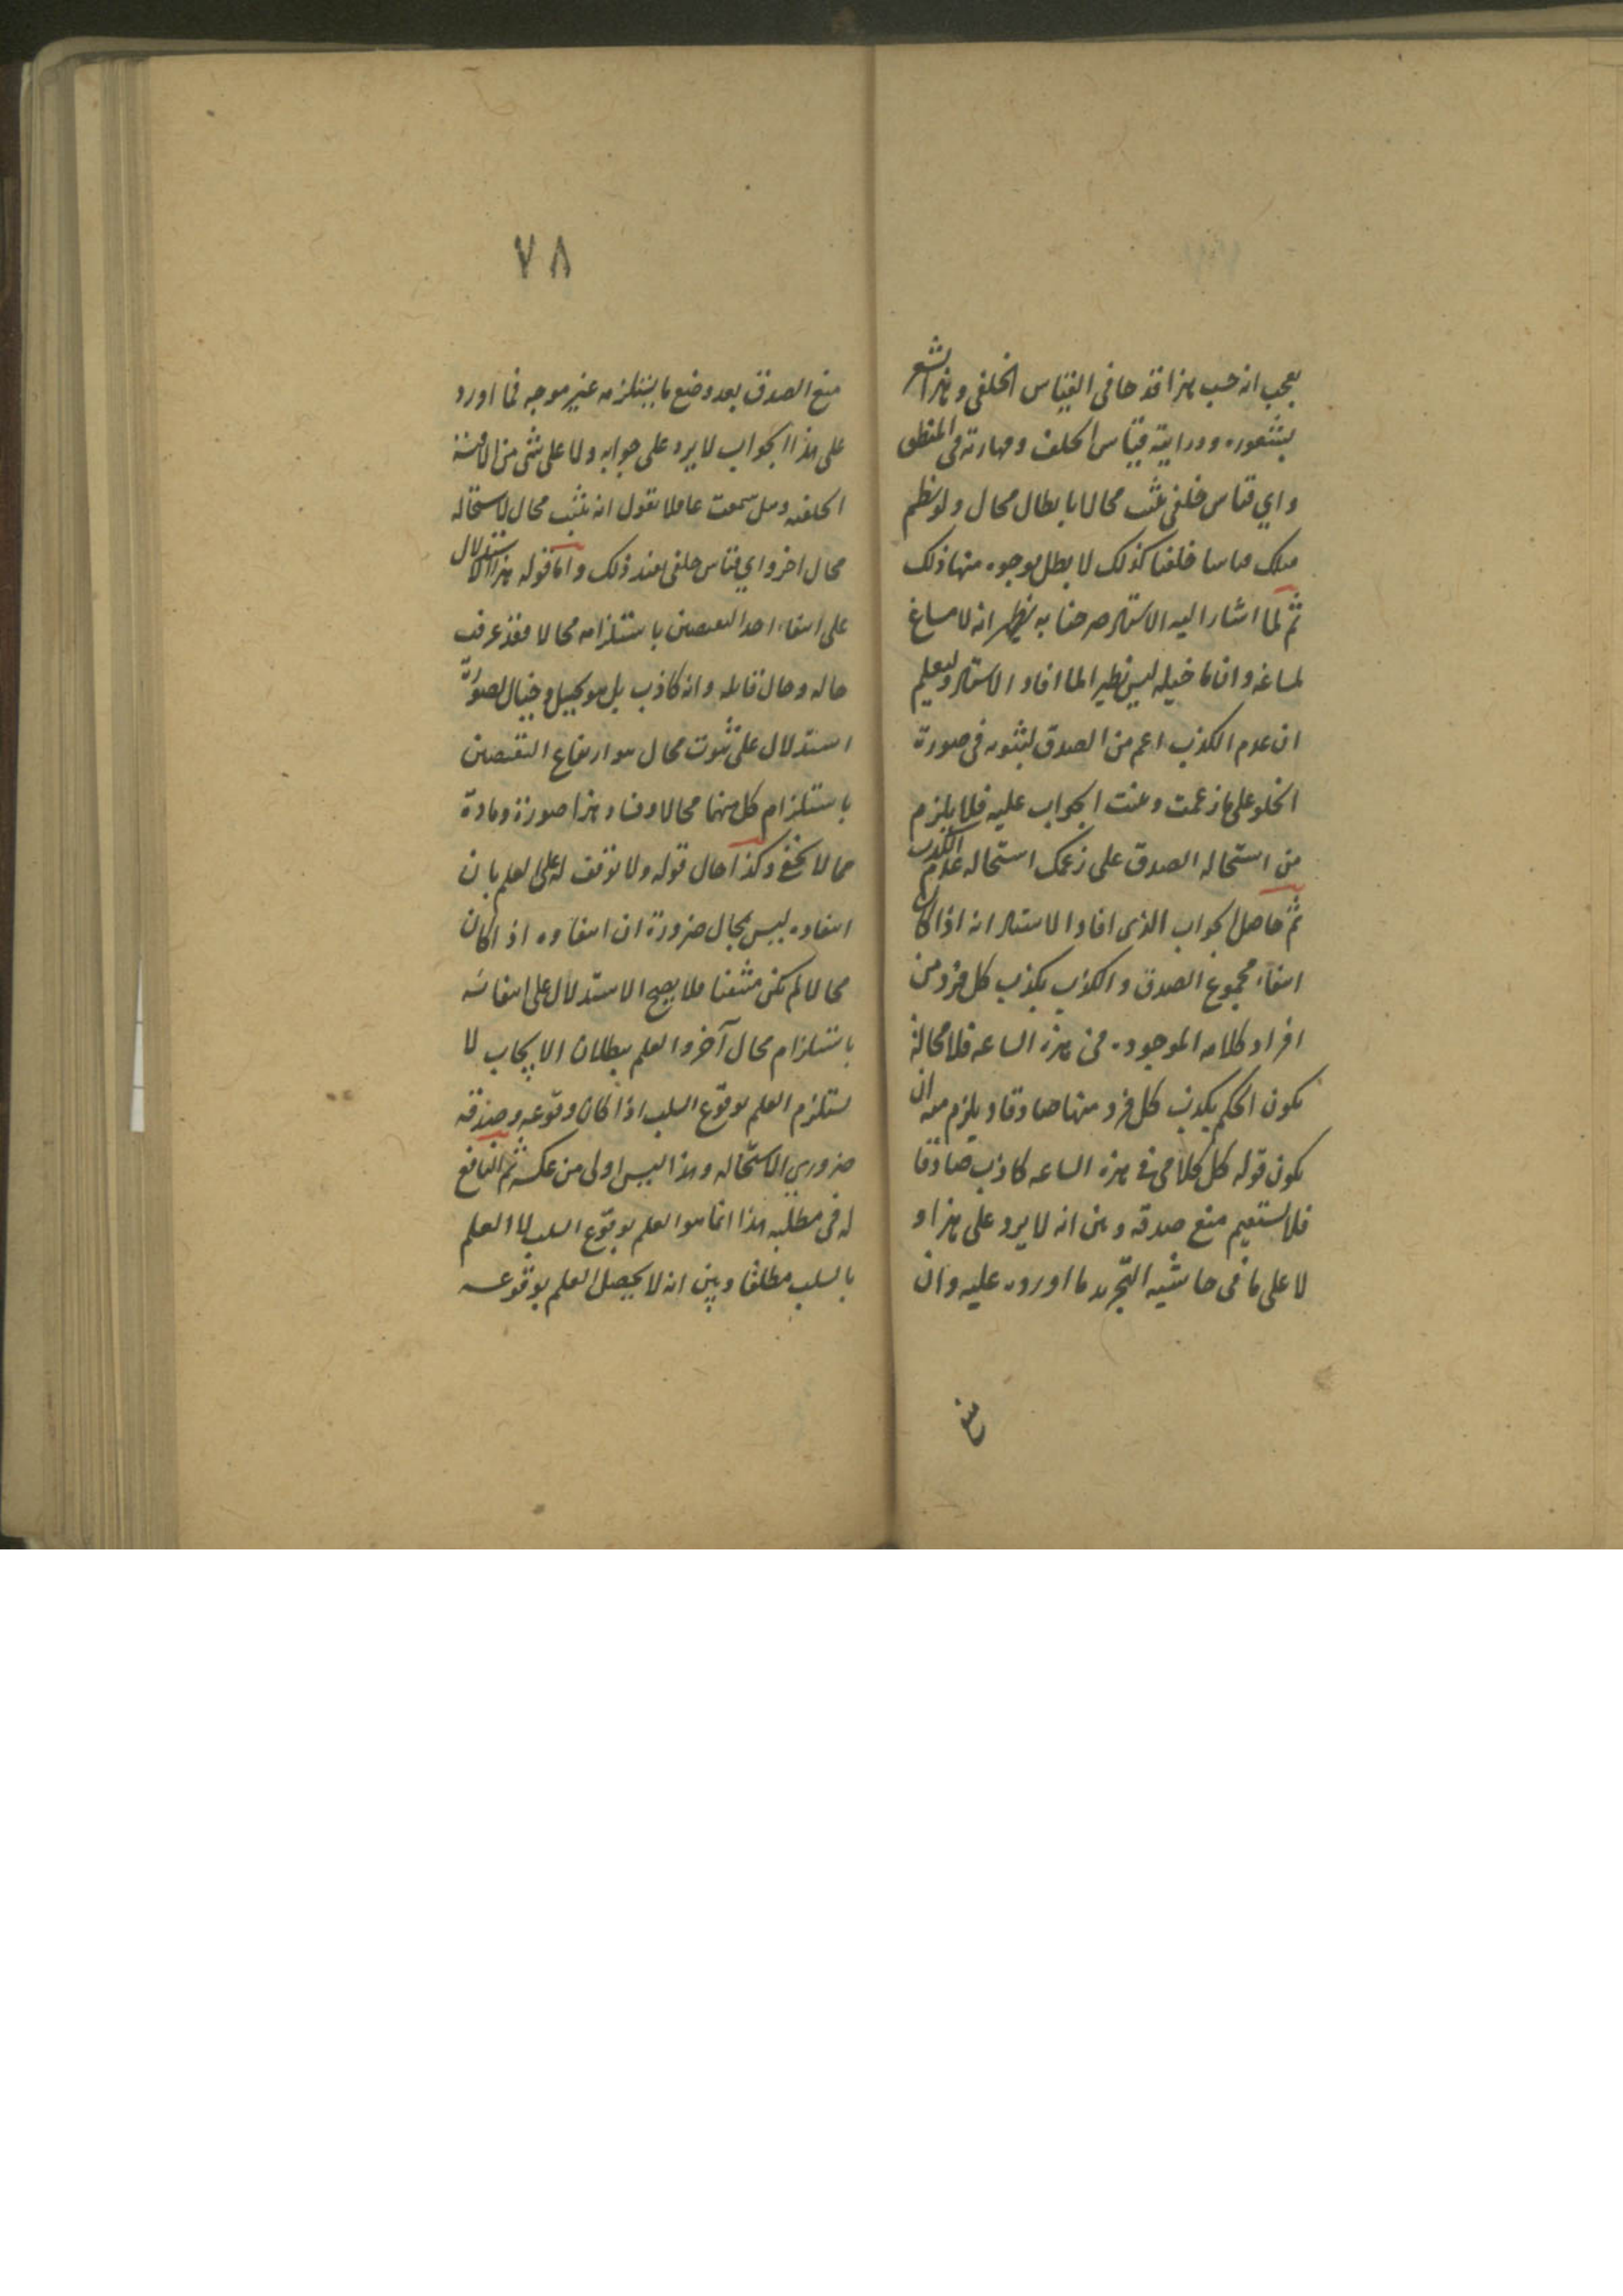 يعجب انه حسب هذا قدحا فى القياس الخلفى و هذا الشعر
بشعوره ودرايته قياس الخلف ومهارته فى المنطق
واي قياس خلفى يثبت محالا بابطال محال ولو نظم
خلفيا كذلك لابطل بوجوه منها ذلك
ثم لما اشار اليه الاستاد صرحنا به ليظهر انه لا مساغ
لمساغه وان ما خيله ليس نظيرا لما افاد الاستاد وليعلم
ان عدم الكذب اعم من الصدق لثبوته فى صورة
الخلو على ما زعمت وبنيت الجواب عليه فلا يلزم
من استحاله الصدق على زعمك استحاله عدم الكذب
ثم حاصل الجواب الذى افاد الاستاد انه اذا كان
انتفاء مجموع الصدق والكذب بكذب كل فرد من
افراد كلامه الموجوده فى هذه الساعه فلا محالة
يكون الحكم بكذب كل فرد منها صادقا ويلزم معه ان
يكون قوله كل كلامى فى هذه الساعه كاذب صادقا
فلا يستقيم منع صدقه وبين انه لا يرد على هذا و
لا على ما فى حاشيه التجريد ما اورده عليه وان
منع
٧٨
منع الصدق بعد وضع ما يستلزمه غير موجه فما اورد
على هذا الجواب لا يرد على جوابه ولا على شئ من الاقيسة
الخلفيه وهل سمعت عاقلا يقول انه يثبت محال لاستحاله
محال اخر واي قياس خلفى يفيد ذلك واما قوله هذا الاستدلال
على انتفاء احد النقيضين باستلزامه محالا فقد عرفت
حاله وحال قايله وانه كاذب بل هو تخييل وخيال لصورة
استدلال على ثبوت محال هو ارتفاع النقيضين
باستلزام كل منهما محالا وفساد هذا صورة ومادة
مما لا يخفى وكذا حال قوله ولا توقف له على العلم بان
انتفاوه ليس بمحال ضرورة ان انتفاوه اذا كان
محالا لم يكن منتفيا فلا يصح الاستدلال على انتفائه
باستلزام محال آخر والعلم ببطلان الايجاب لا
يستلزم العلم بوقوع السلب اذا كان وقوعه وصدقه
ضروري الاستحاله وهذا ليس اولى من عكسه ثم النافع
له فى مطلبه هذا انما هو العلم بوقوع السلب لا العلم
بالسلب مطلقا وبين انه لا يحصل العلم بوقوعه